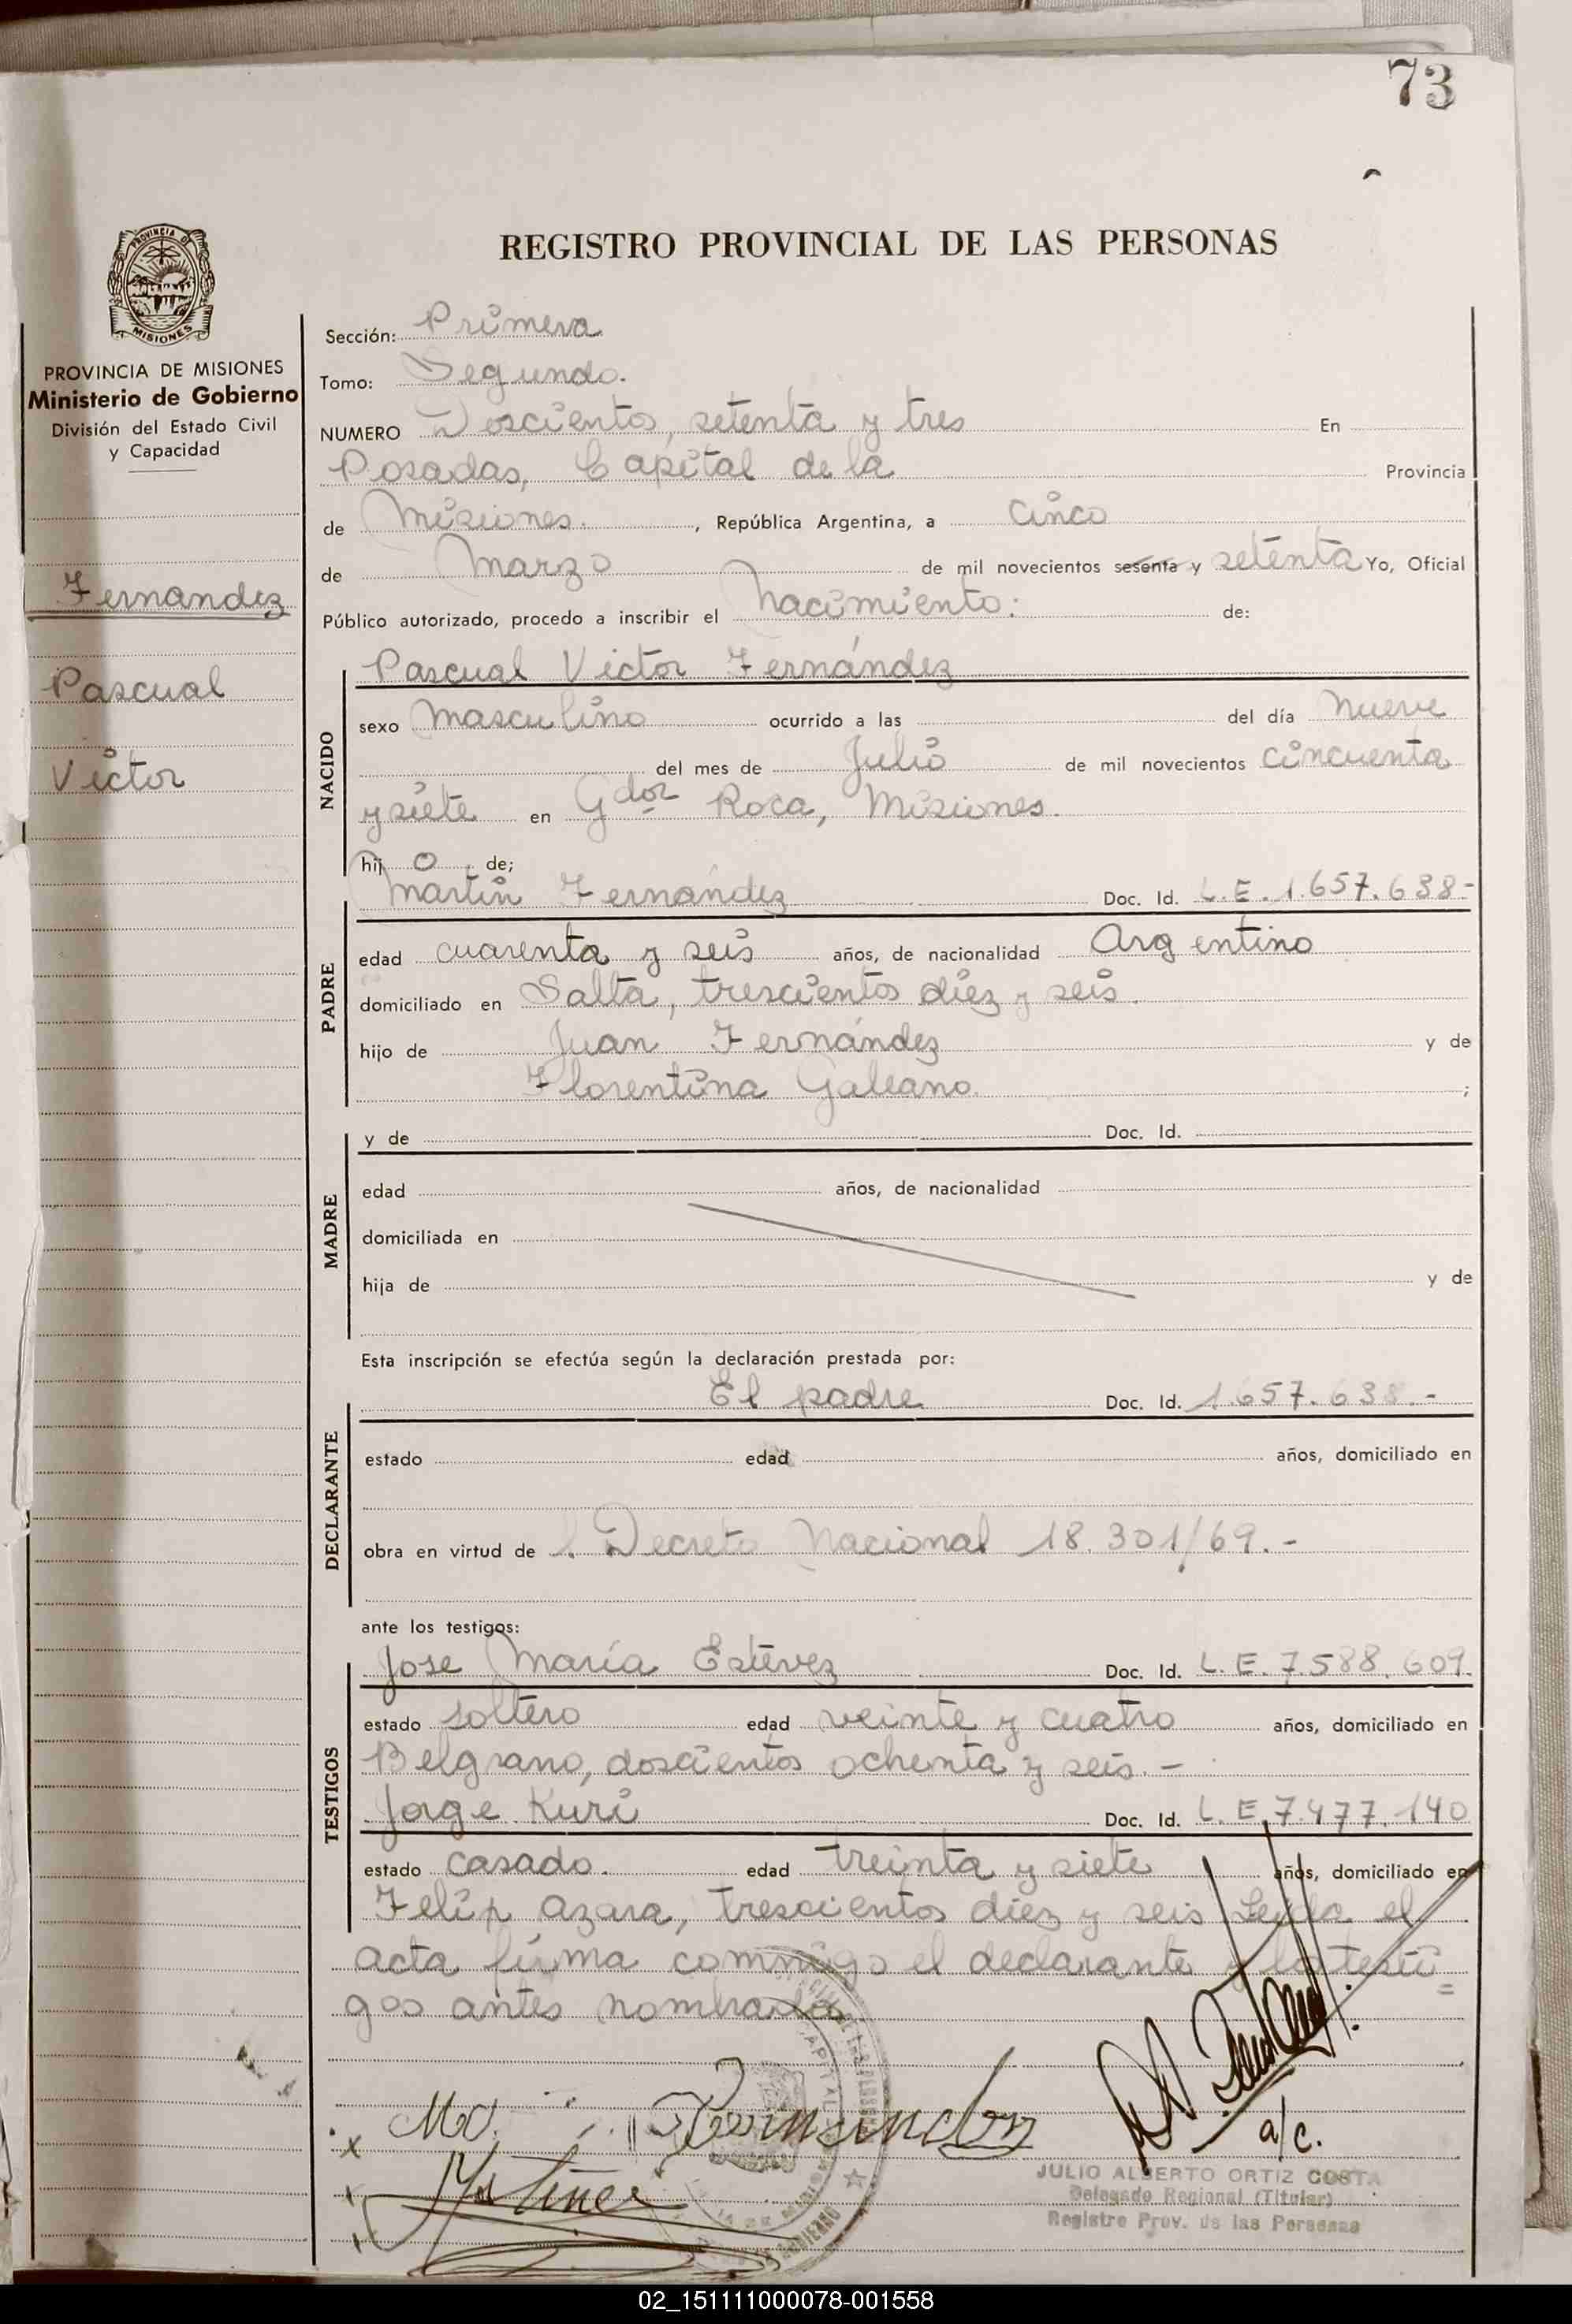 73
PROVINCIA DE
MISIONES
REGISTRO PROVINCIAL DE LAS PERSONAS
PROVINCIA DE MISIONES
Ministerio de Gobierno
División del Estado Civil
y Capacidad
Fernandez
Pascual
Victor
Sección: Primera
Tomo: Segundo.
NUMERO Doscientos, setenta y tres En
Posadas, Capital de la Provincia
de Misiones. , República Argentina, a cinco
de Marzo de mil novecientos sesenta y setenta Yo, Oficial
Público autorizado, procedo a inscribir el Nacimiento: de:
Pascual Victor Fernández
NACIDO
sexo Masculino ocurrido a las del día nueve
del mes de Julio de mil novecientos cincuenta
y siete en Gdor Roca, Misiones.
hij o de;
Martin Fernández Doc. Id. L.E. 1.657.638-
PADRE
edad cuarenta y seis años, de nacionalidad Argentino
domiciliado en Salta, trescientos diez y seis.
hijo de Juan Fernández y de
Florentina Galeano. ;
y de Doc. Id.
MADRE
edad años, de nacionalidad
domiciliada en
hija de y de
Esta inscripción se efectúa según la declaración prestada por:
El padre Doc. Id. 1.657.638.-
DECLARANTE
estado edad años, domiciliado en
obra en virtud de l. Decreto Nacional 18.301/69.-
ante los testigos:
Jose María Estévez Doc. Id. L.E. 7.588.609.
TESTIGOS
estado soltero edad veinte y cuatro años, domiciliado en
Belgrano, doscientos ochenta y seis.-
Jorge Kuri Doc. Id. L.E. 7.477.140
estado casado. edad treinta y siete años, domiciliado en
Felip Azara, trescientos diez y seis Leida el
acta firma conmigo el declarante y los testi=
gos antes nombrados
a/c.
JULIO ALBERTO ORTIZ COSTA
Delegado Regional (Titular)
Registro Prov. de las Personas
02_151111000078-001558